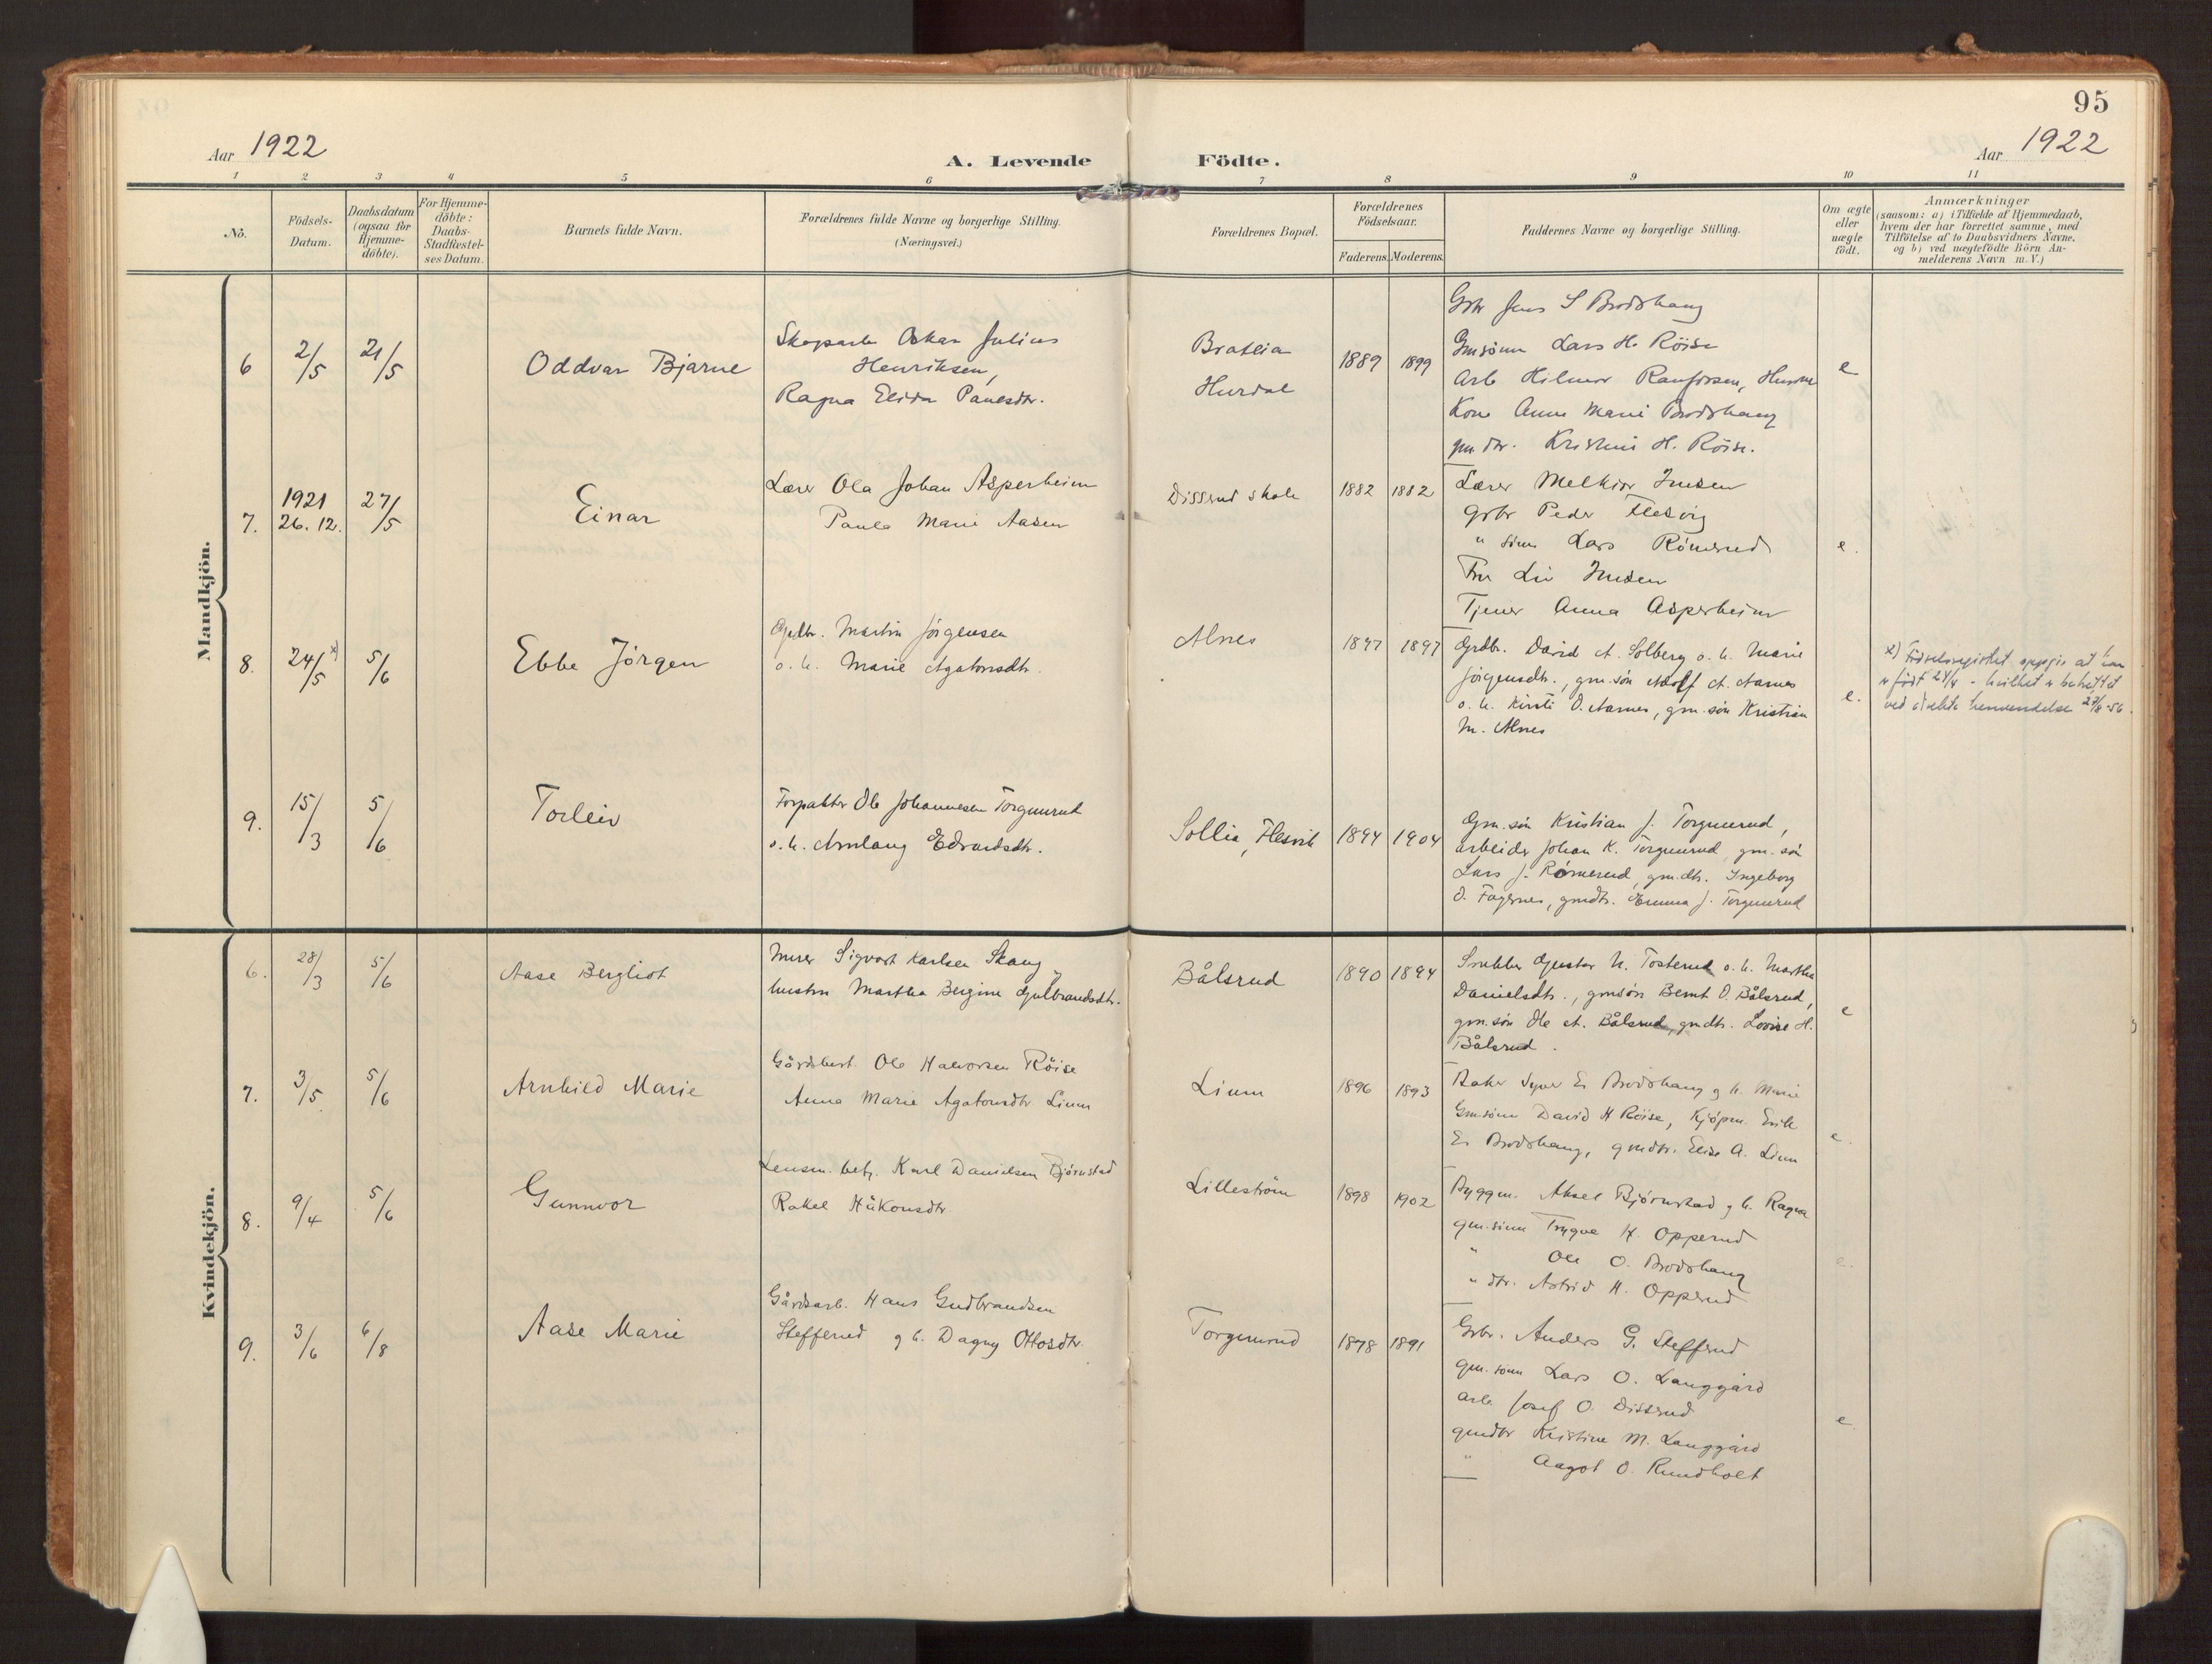 95
Aar 1922
A. Levende Födte.
Aar 1922
1 2 3 4 5 6 7 8 9 10 11
No.
Födsels-
Datum.
Daabsdatum
(ogsaa for
Hjemme-
döbte).
For Hjemme-
döbte:
Daabs-
Stadfæstel-
ses Datum.
Barnets fulde Navn.
Forældrenes fulde Navne og borgerlige Stilling.
(Næringsvei.)
Forældrenes Bopæl.
Forældrenes
Födselsaar.
Faderens. Moderens.
Faddernes Navne og borgerlige Stilling.
Om ægte
eller
uægte
födt.
Anmærkninger
(saasom: a) i Tilfælde af Hjemmedaab,
hvem der har forrettet samme, med
Tilföielse af to Daabsvidners Navne,
og b) ved uægtefödte Börn An-
melderens Navn m. V.)
Mandkjön.
6 2/5 21/5
Oddvar Bjarne
Oskar Julius
Henriksen,
Ragna Elida
Bratlia
Hurdal
1889 1899
Jens S Brodshaug
Gmsønn Lars H. Röise
Arb Hilmar
Kone Anna Marie Brodshaug
gm dtr. H. Röise.
e
7. 1921
26.12. 27/5
Einar
Lærer Ola Johan Asperheim
Paula Marie Aasen
Dissrud skole
1882 1882
Lærer Melkior
Grbr Peder Flesvig
" sönn Lars Römerud
Fru Liv
Tjener Anna Asperheim
e.
8. 24/5 x) 5/6
Ebbe Jörgen
Martin Jörgensen
o. h. Marie Agatonsdtr.
Alnes
1897 1897
Grdbr. David A. Solberg o. h. Marie
Jörgensdtr., gm.sön Adolf A. Aarnes
o. h. Kirsti O. Aarnes, gm. sön Kristian
M. Alnes
e.
x) Födselsregistret oppgis at han
er född 24/4 - hvilket er bekreftet
ved direkte henvendelse 27/8-56.
9. 15/3 5/6
Torleiv
Forpakter Ole Johannesen Torgunrud
o. h. Arnlaug Edvardsdtr.
Sollia, Flesvik
1894 1904
Gm. sön Kristian J. Torgunrud,
arbeider Johan K. Torgunrud, gm. sön
Lars J. Römerud, gm.dtr. Ingeborg
O. Fagernes, gmdtr. Emma J. Torgunrud
Kvindekjön.
6. 28/3 5/6
Aase Bergliot
Murer Sigvart Karlsen Skaug
hustru Martha Bergine Gulbrandsdtr.
Bålsrud
1890 1894
Snekker Gustav N. Tosterud o. h. Martha
Danielsdtr., gmsön Bernt O. Bålsrud,
gm.sön Ole A. Bålsrud, gmdtr. Lovise H.
Bålsrud.
e
7. 3/5 5/6
Arnhild Marie
Gårdsbest. Ole Halvorsen Röise
Anna Marie Agatonsdtr Lium
Lium
1896 1893
Baker Syver E. Brodshaug g h. Marie
Gmsönn David H Röise, Kjöpm. Erik
E. Brodshaug, gmdtr. Elise A. Lium
e.
8. 9/4 5/6
Gunnvor
Lensm. betj. Karl Danielsen Björnstad
Rakel Håkonsdtr
Lilleström
1898 1902
Byggm. Aksel Björnstad g h. Ragna
gm.sönn Trygve H. Opperud
" Ole O. Brodshaug
" dtr. Astrid H. Opperud
e.
9. 3/6 6/8
Aase Marie
Gårdsarb. Hans Gudbrandsen
Steffenrud g h. Dagny Ottosdtr.
Torgunrud
1878 1891
Grbr. Anders G. Steffenrud
gm. sönn Lars O. Langgård
arb. Josef O. Dissrud
gmdtr Kristine M. Langgård
" Aagot O. Rundholt
e